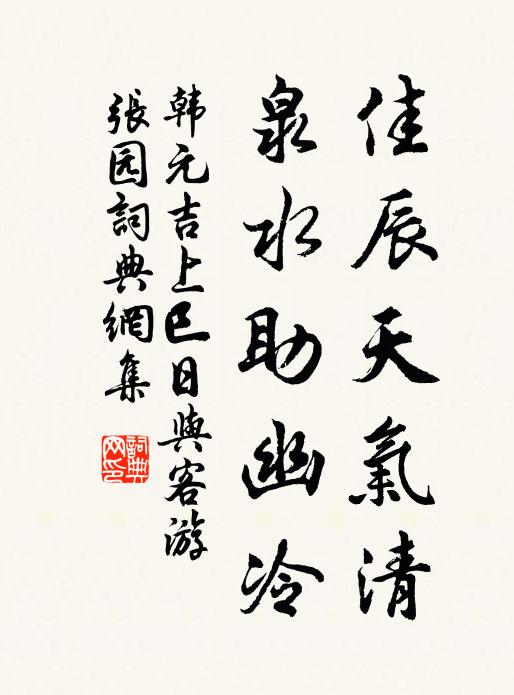 佳辰天氣清
泉水助幽冷
韩元吉上巳日與客游
張园詞典網集
詞典
网印